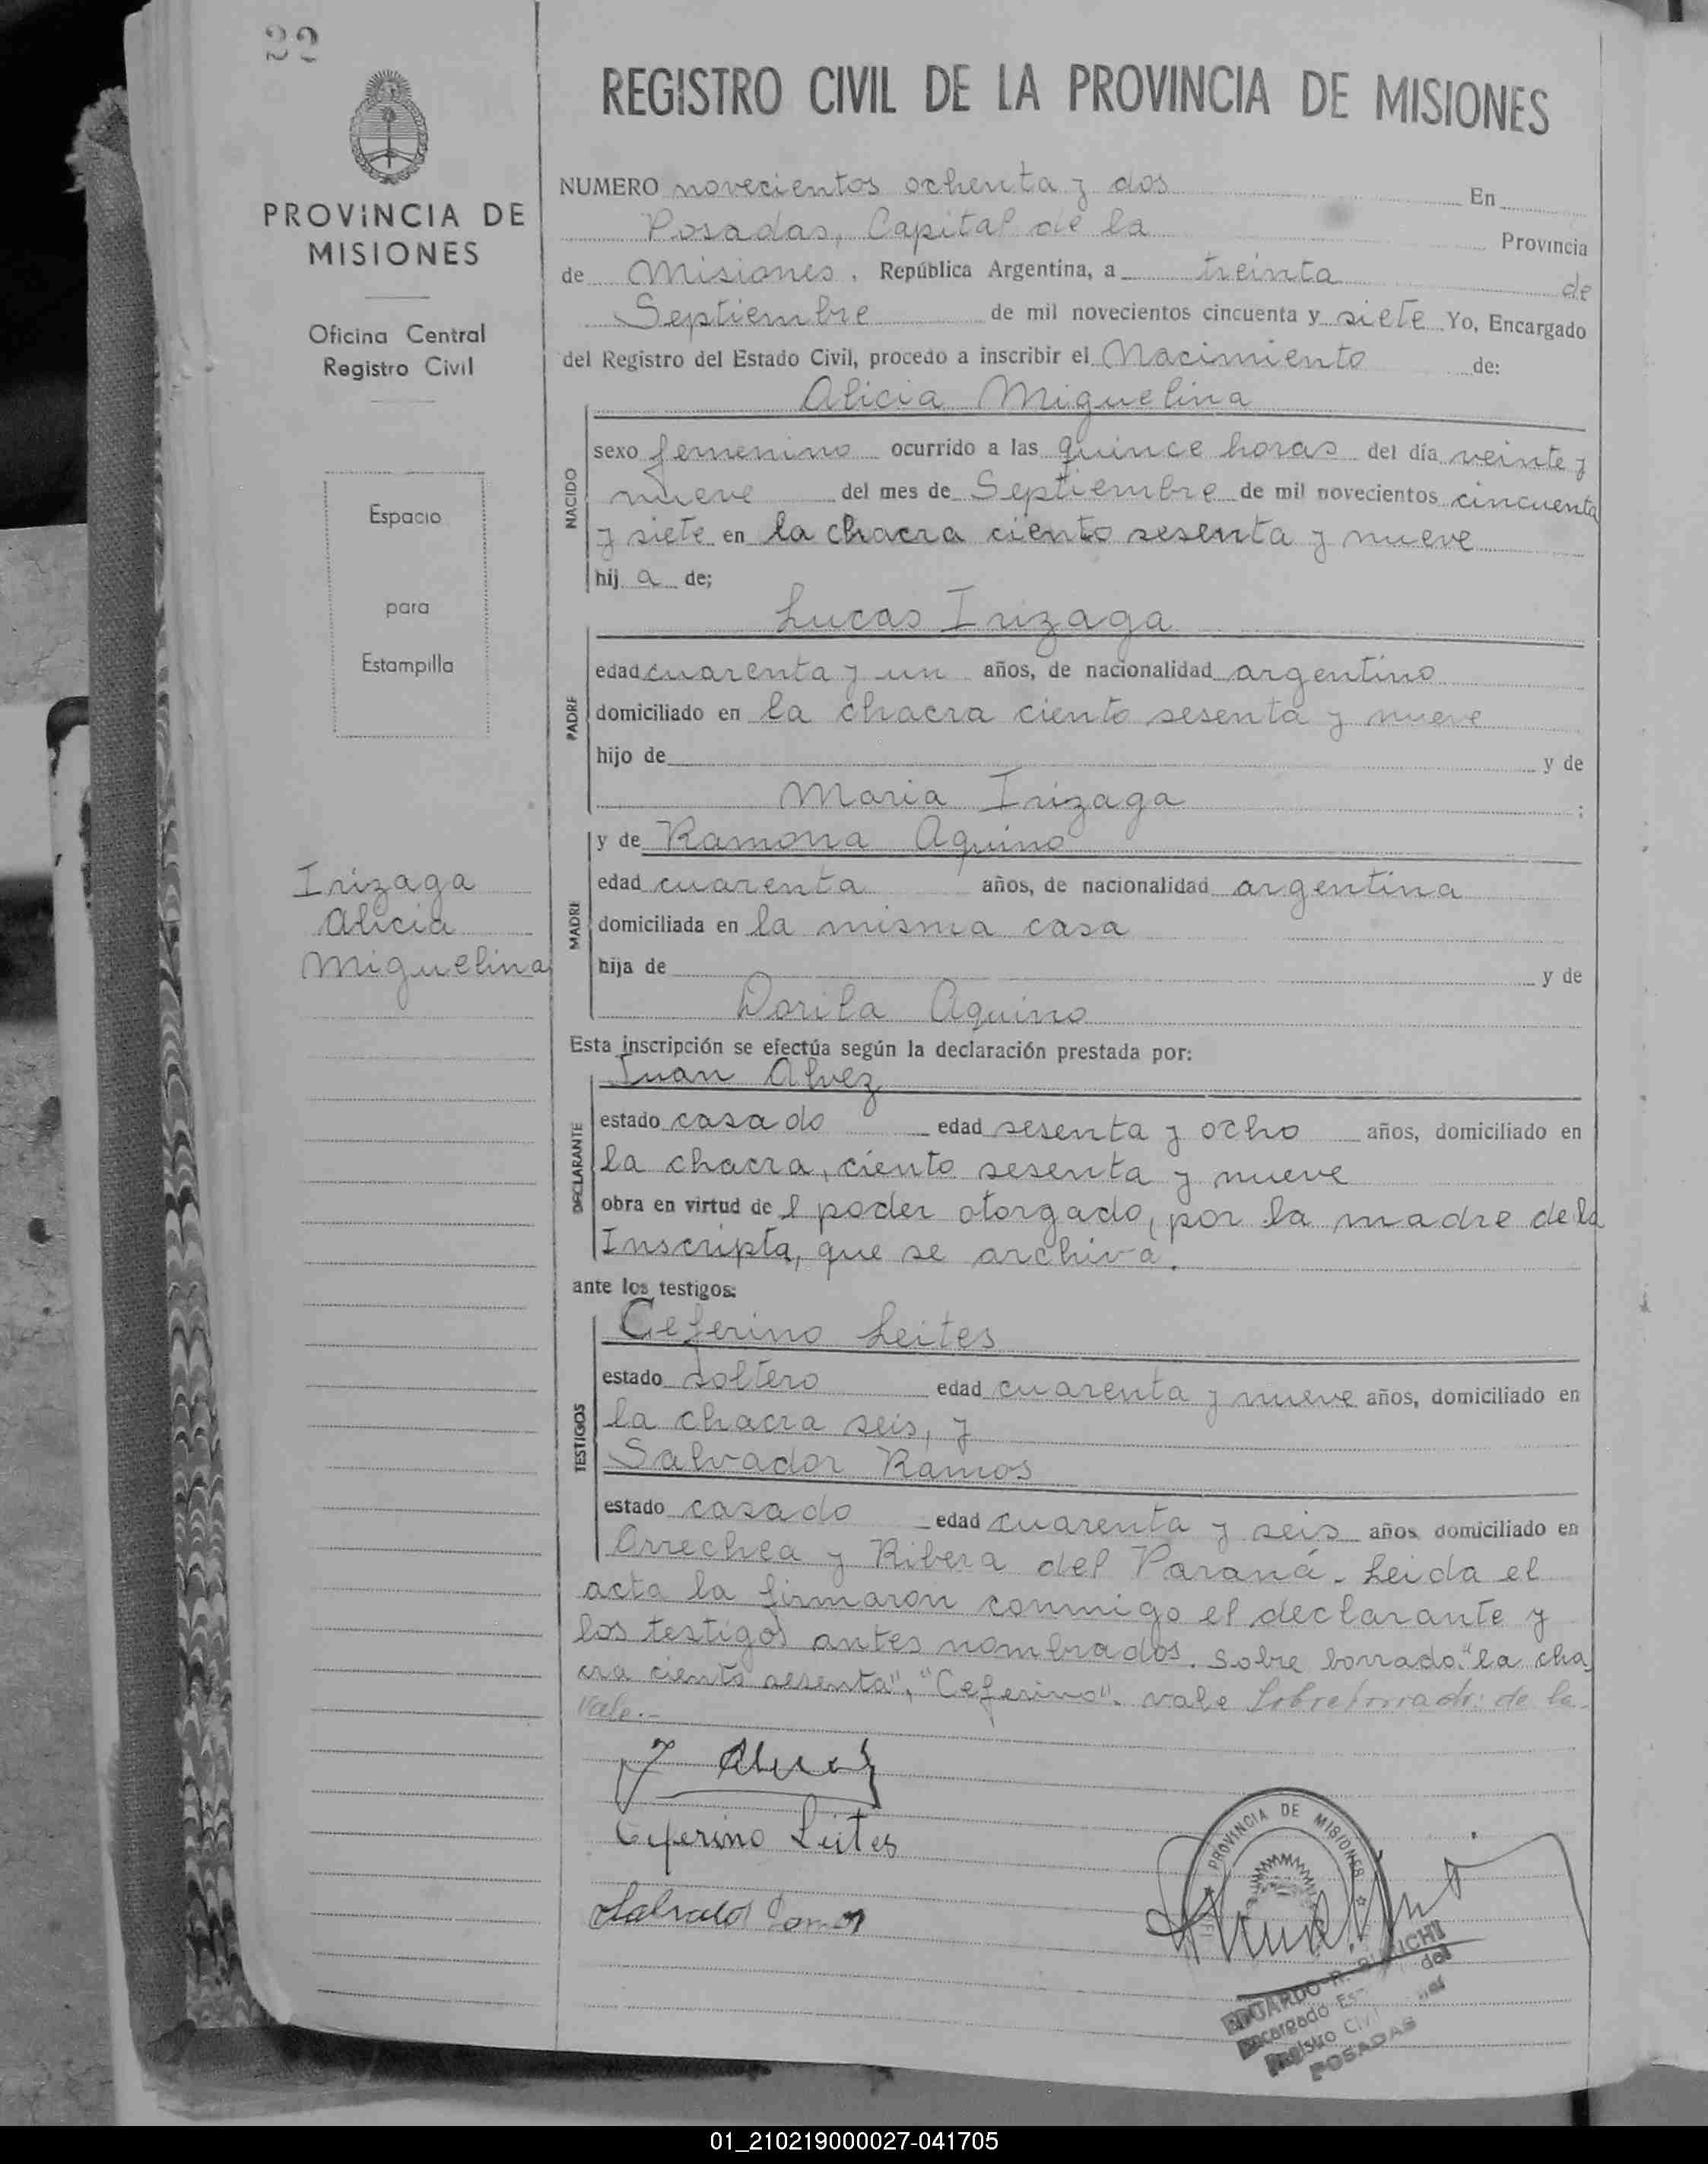 22
REGISTRO CIVIL DE LA PROVINCIA DE MISIONES
PROVINCIA DE
MISIONES
Oficina Central
Registro Civil
Espacio
para
Estampilla
Irizaga
Alicia
Miguelina
NUMERO novecientos ochenta y dos En
Posadas, Capital de la Provincia
de Misiones, República Argentina, a treinta de
Septiembre de mil novecientos cincuenta y siete Yo, Encargado
del Registro del Estado Civil, procedo a inscribir el Nacimiento de:
Alicia Miguelina
NACIDO
sexo femenino ocurrido a las quince horas del día veinte y
nueve del mes de Septiembre de mil novecientos cincuenta
y siete en la chacra ciento sesenta y nueve
hij a de;
Lucas Irizaga
PADRE
edad cuarenta y un años, de nacionalidad argentino
domiciliado en la chacra ciento sesenta y nueve
hijo de y de
Maria Irizaga ;
y de Ramona Aquino
MADRE
edad cuarenta años, de nacionalidad argentina
domiciliada en la misma casa
hija de y de
Dorila Aquino
Esta inscripción se efectúa según la declaración prestada por:
Juan Alvez
DECLARANTE
estado casado edad sesenta y ocho años, domiciliado en
la chacra, ciento sesenta y nueve
obra en virtud de l poder otorgado, por la madre de la
Inscripta, que se archiva.
ante los testigos:
Ceferino Leites
TESTIGOS
estado soltero edad cuarenta y nueve años, domiciliado en
la chacra seis, y
Salvador Ramos
estado casado edad cuarenta y seis años domiciliado en
Orrechea y Ribera del Paraná. Leida el
acta la firmaron conmigo el declarante y
los testigos antes nombrados. Sobre borrado: "la cha
cra ciento sesenta", "Ceferino". vale Sobreborrado: de la
Vale.-
J Alvez
Ceferino Leites
Salvador Ramos
PROVINCIA DE MISIONES
EDUARDO R.
Encargado del
Registro Civil
POSADAS
01_210219000027-041705